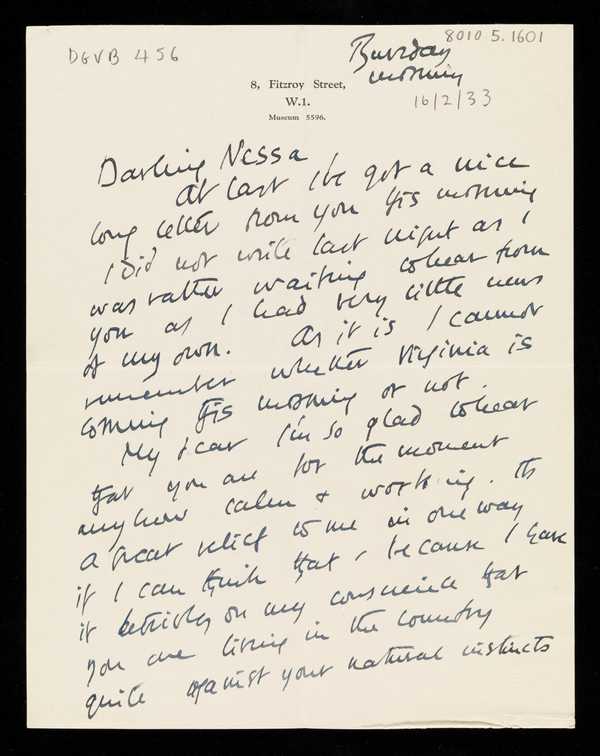 DGVB 456
8010 5.1601
Thursday
morning
16/2/33
8, Fitzroy Street,
W.1.
Museum 5596.
Darling Nessa
At last I've got a nice
long letter from you this morning
I did not write last night as I
was rather waiting to hear from
you as I had very little news
of my own. As it is I cannot
remember whether Virginia is
coming this morning or not.
My dear I'm so glad to hear
that you are for the moment
anyhow calm & working. Its
a great relief to me in one way
if I can think that, because I have
it terribly on my conscience that
you are living in the country
quite against your natural instincts